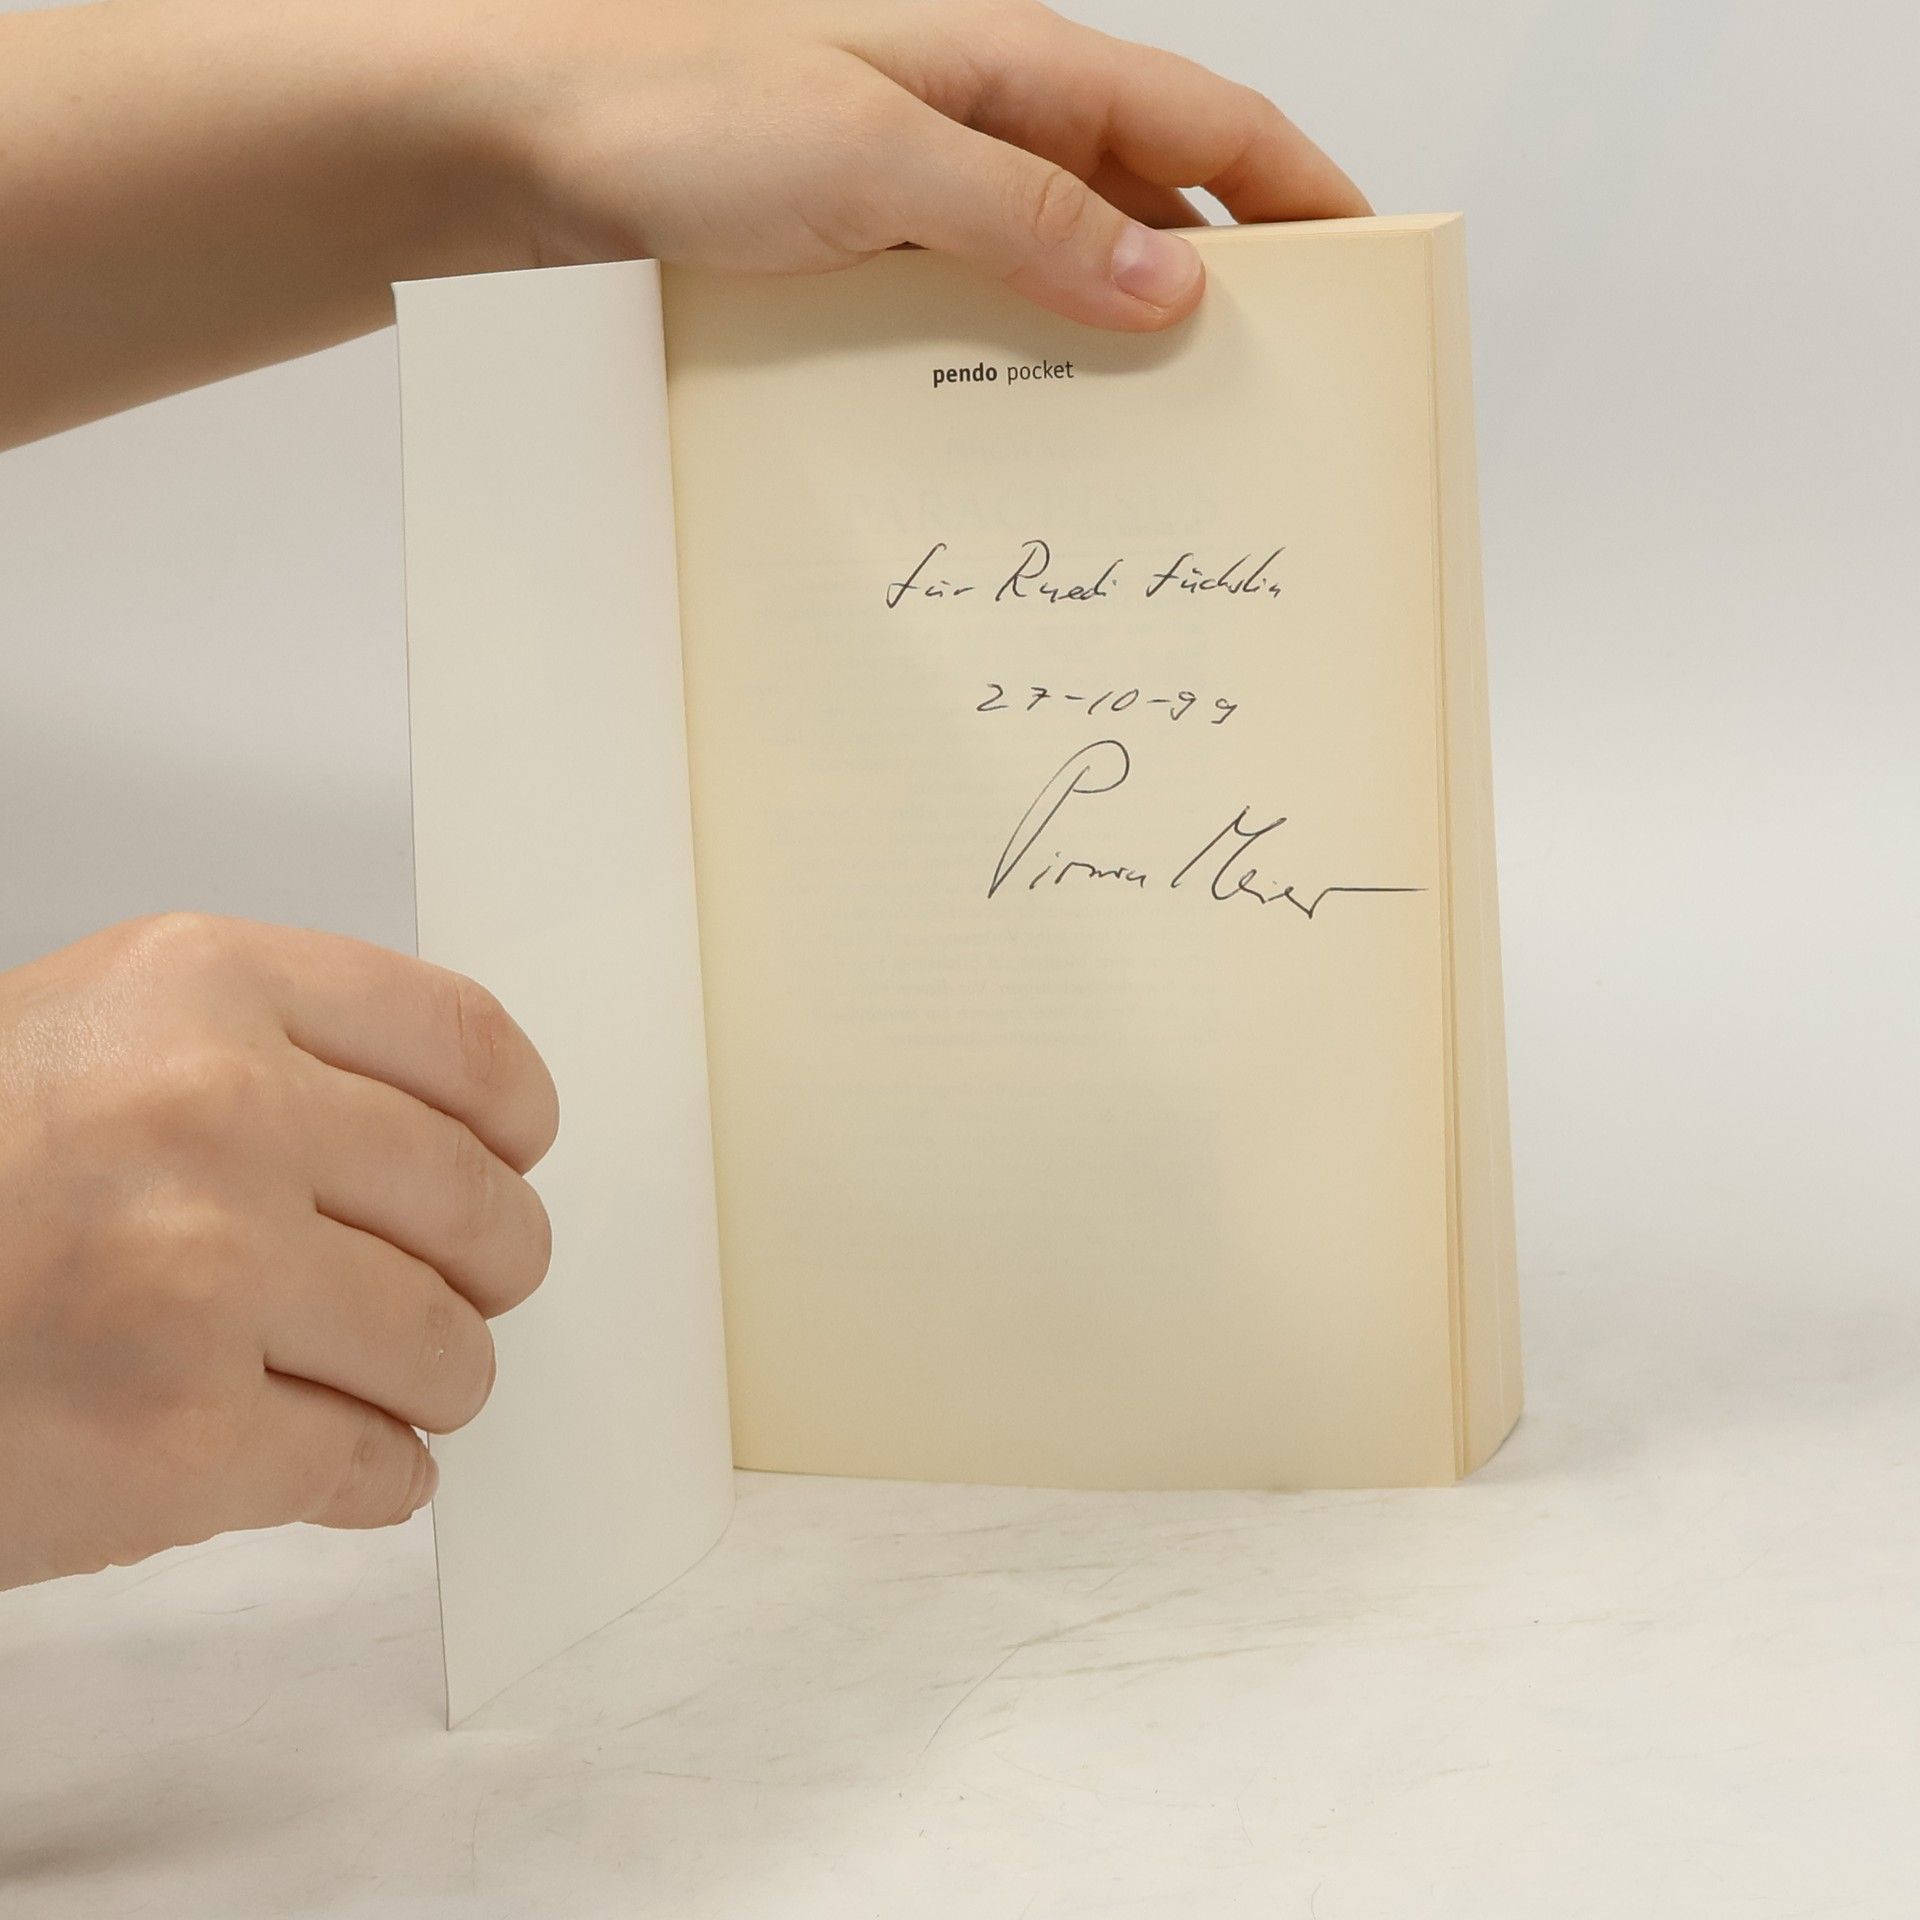 pendo pocket
für Ruedi Füchslin
27-10-99
Pirmin Meier